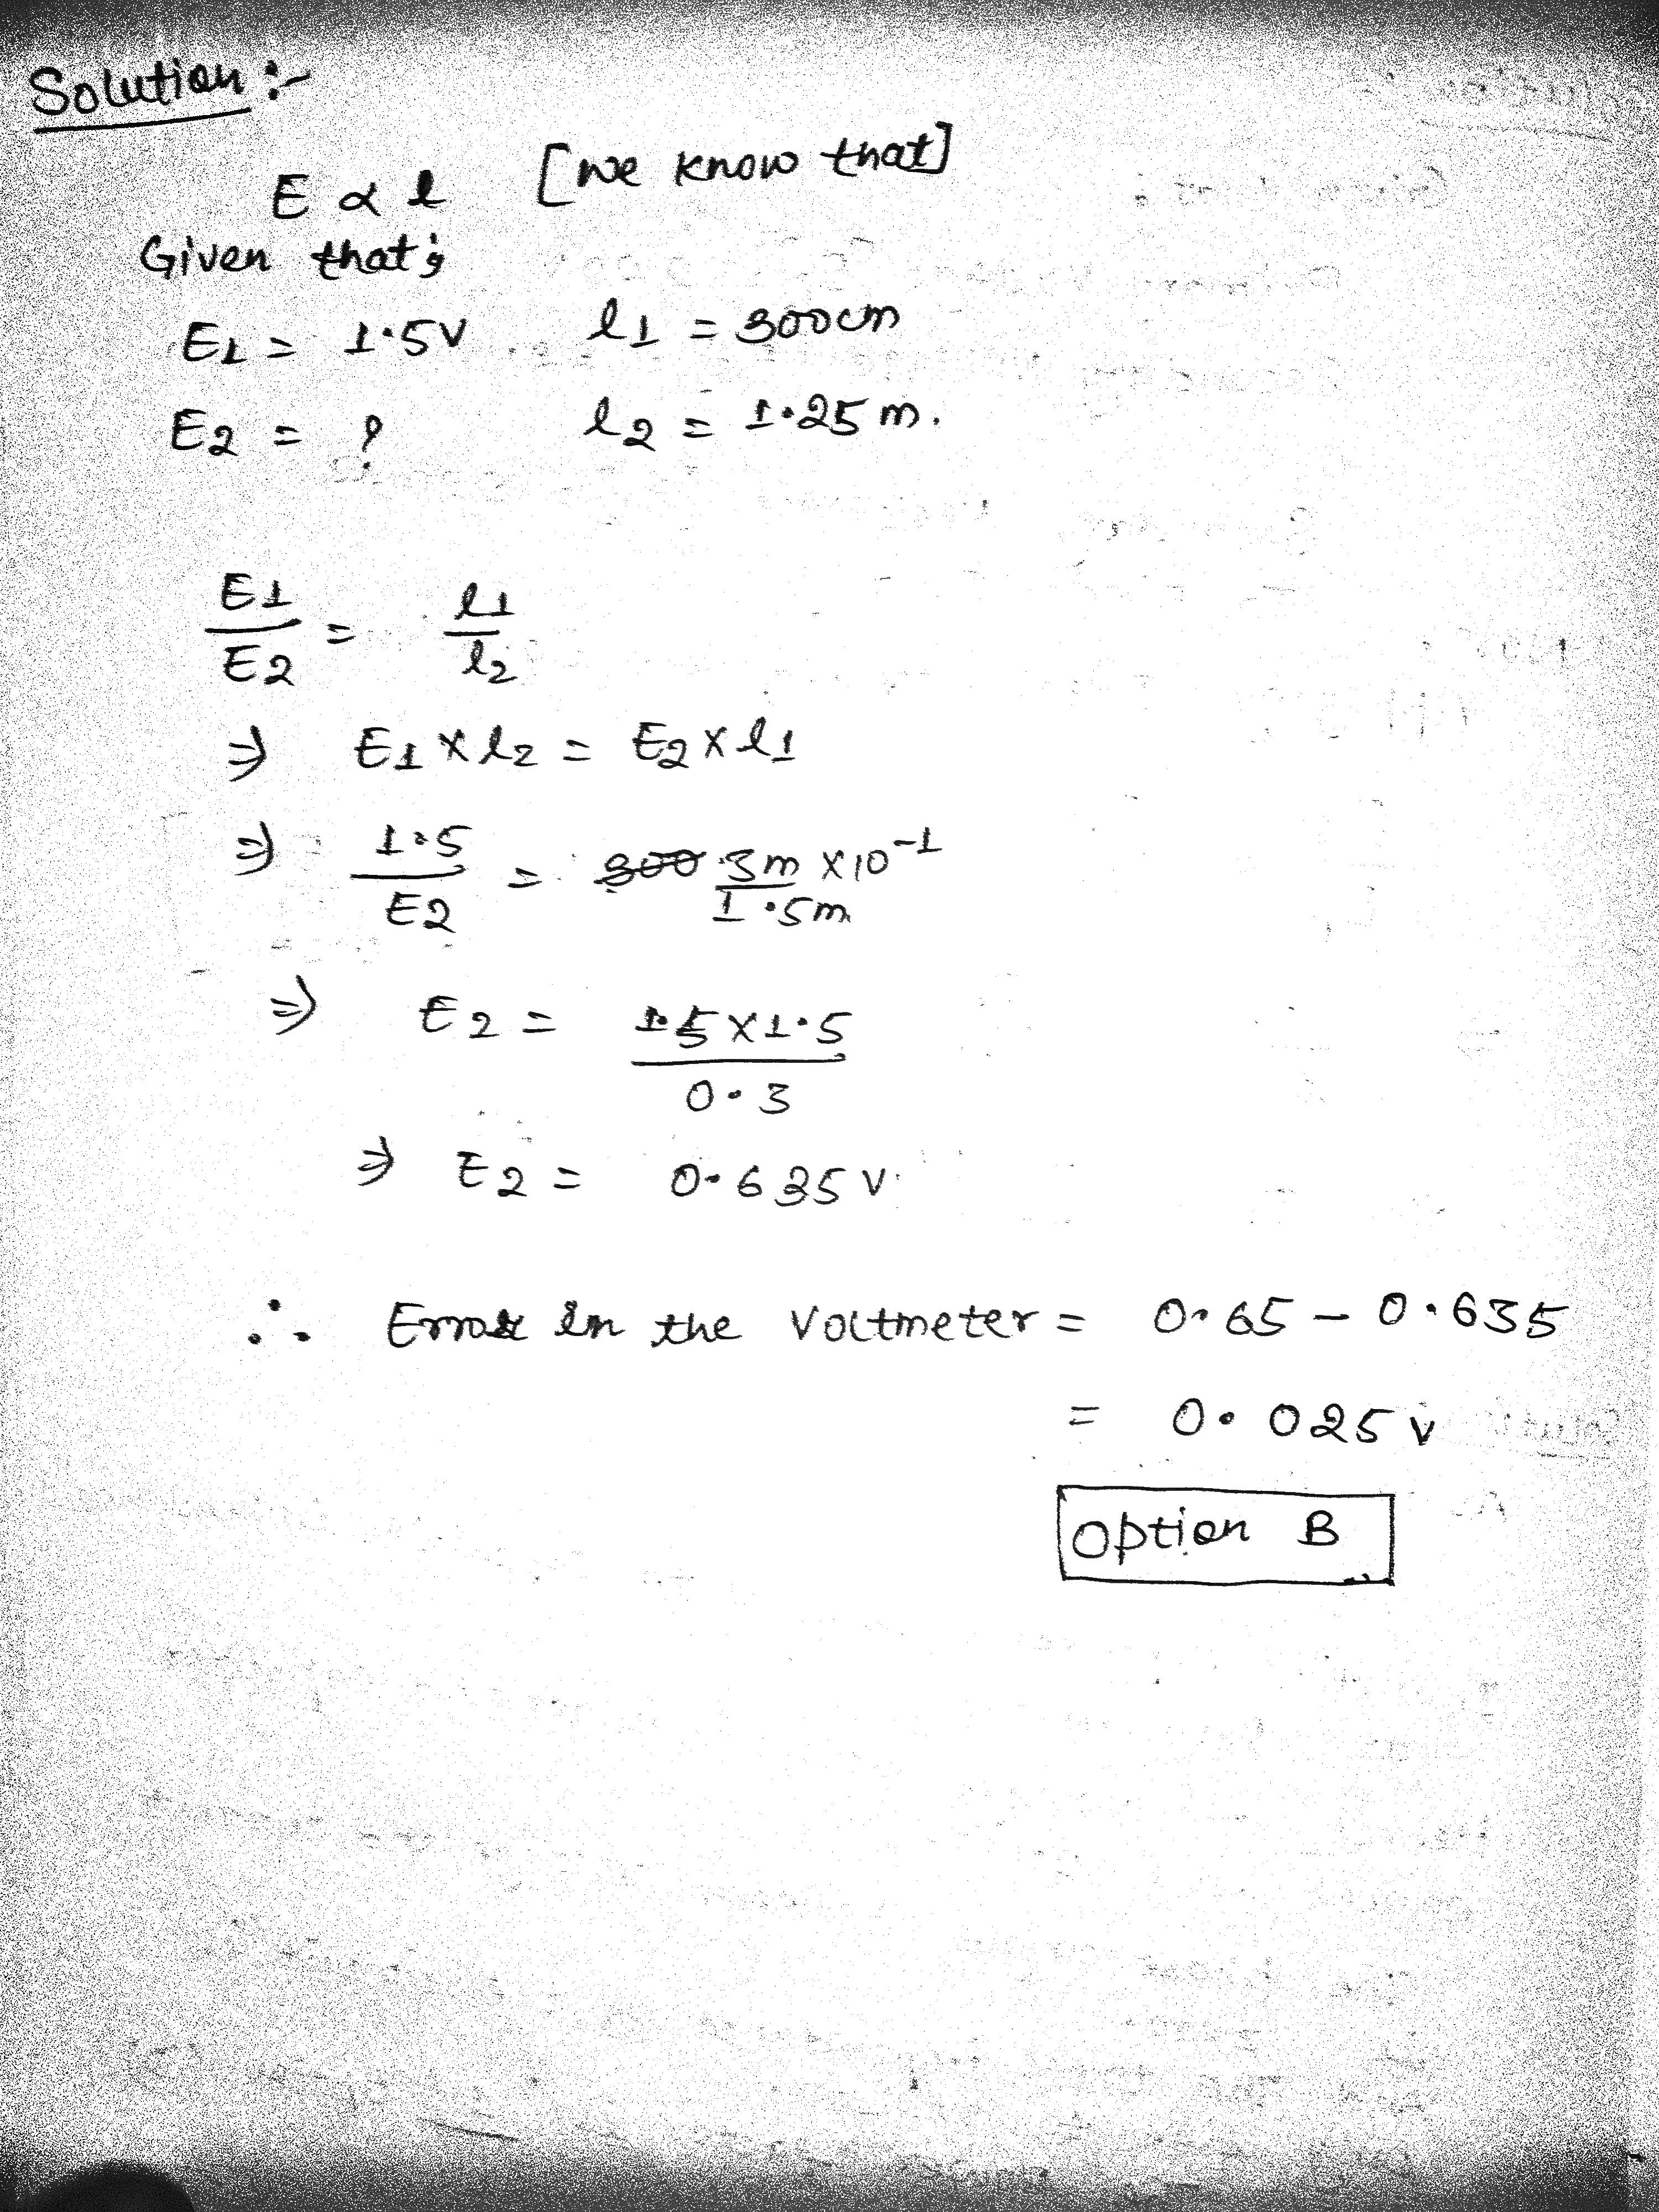 Solution :-
E ∝ l [we know that]
Given that;
E1 = 1.5V l1 = 300cm
E2 = ? l2 = 1.25 m.
E1/E2 = l1/l2
⇒ E1 × l2 = E2 × l1
⇒ 1.5/E2 = 300 3m × 10^-1/1.5m
⇒ E2 = 1.5 × 1.5/0.3
⇒ E2 = 0.635 V
∴ Error in the Voltmeter = 0.65 - 0.635
= 0.025 V
Option B